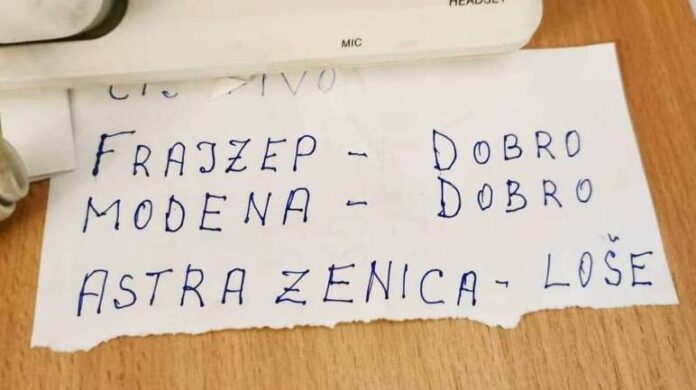 HEADSET
MIC
FRAJZEP - DOBRO
MODENA - DOBRO
ASTRA ZENICA - LOŠE